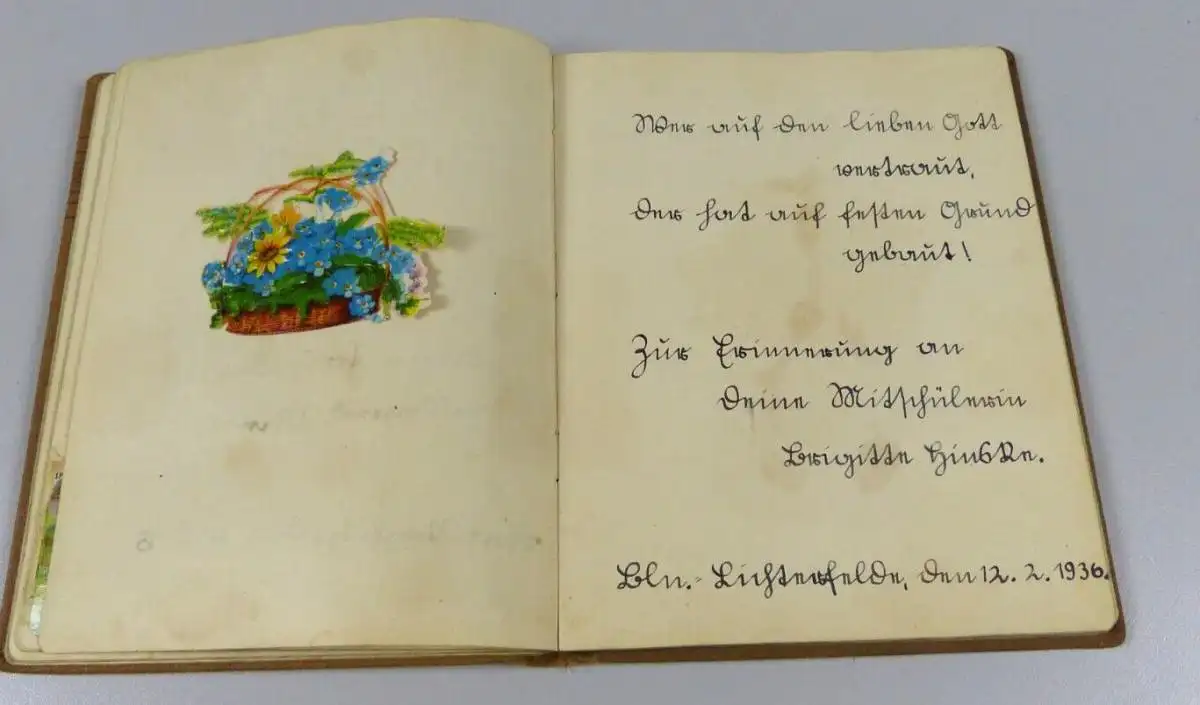 Wer auf den lieben Gott
vertraut,
der hat auf festen Grund
gebaut!
Zur Erinnerung an
deine Mitschülerin
Brigitte
Bln.-Lichterfelde, den 12. 2. 1936.